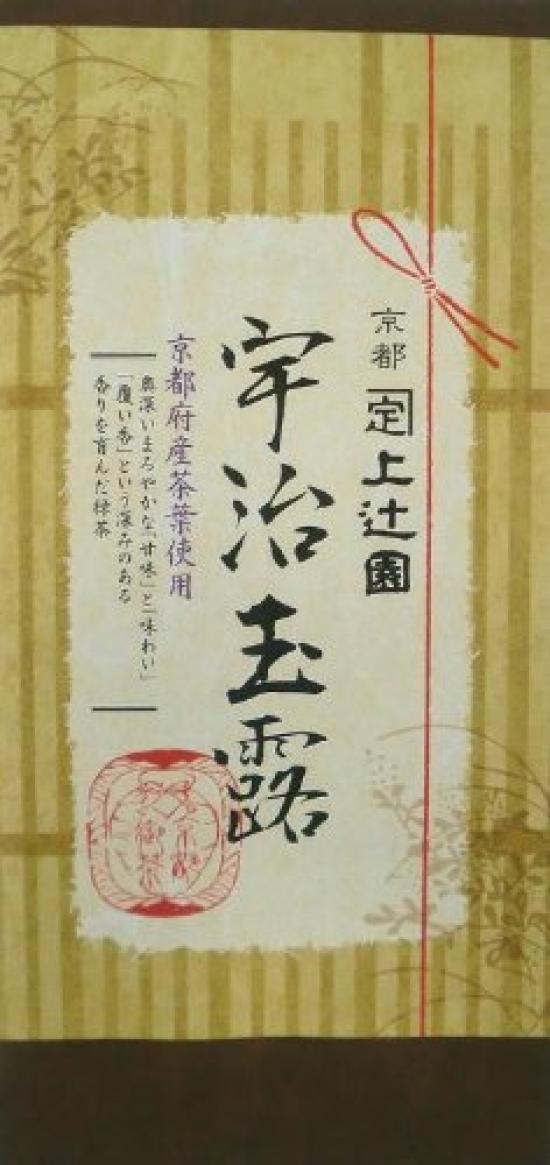 京都 上辻園
宇治玉露
京都府産茶葉使用
奥深いまろやかな「甘味」と「味わい」
「覆い香」という深みのある
香りを育んだ緑茶